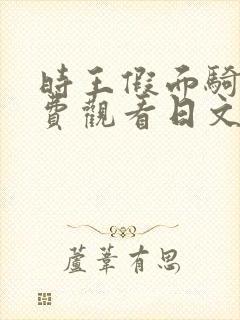 時王假而騎
費觀看日文
蘆葦有思